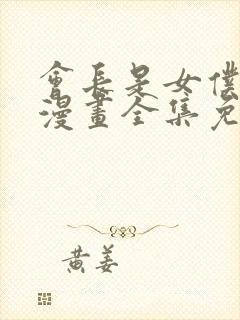 會長是女僕
漫畫全集免
黄姜